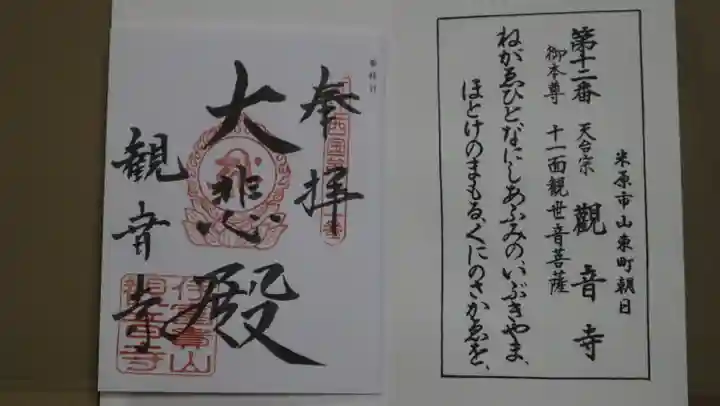 米原市山東町朝日
第十二番 天台宗 觀音寺
御本尊 十一面観世音菩薩
ねがゑひと、なにしあふみの、いぶきやま、
ほとけのまもる、くにのさかゑを、
奉拝
大悲殿
観音寺